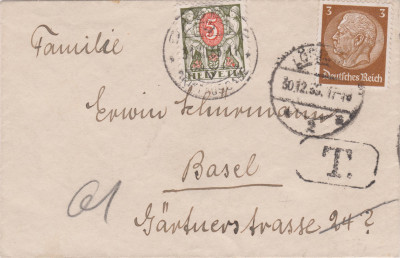 Familie
5
HELVETIA
3 3
Deutsches Reich
30.12.35. 17-18
2
Erwin Schurmann
T.
Basel
Gärtnerstrasse 24?